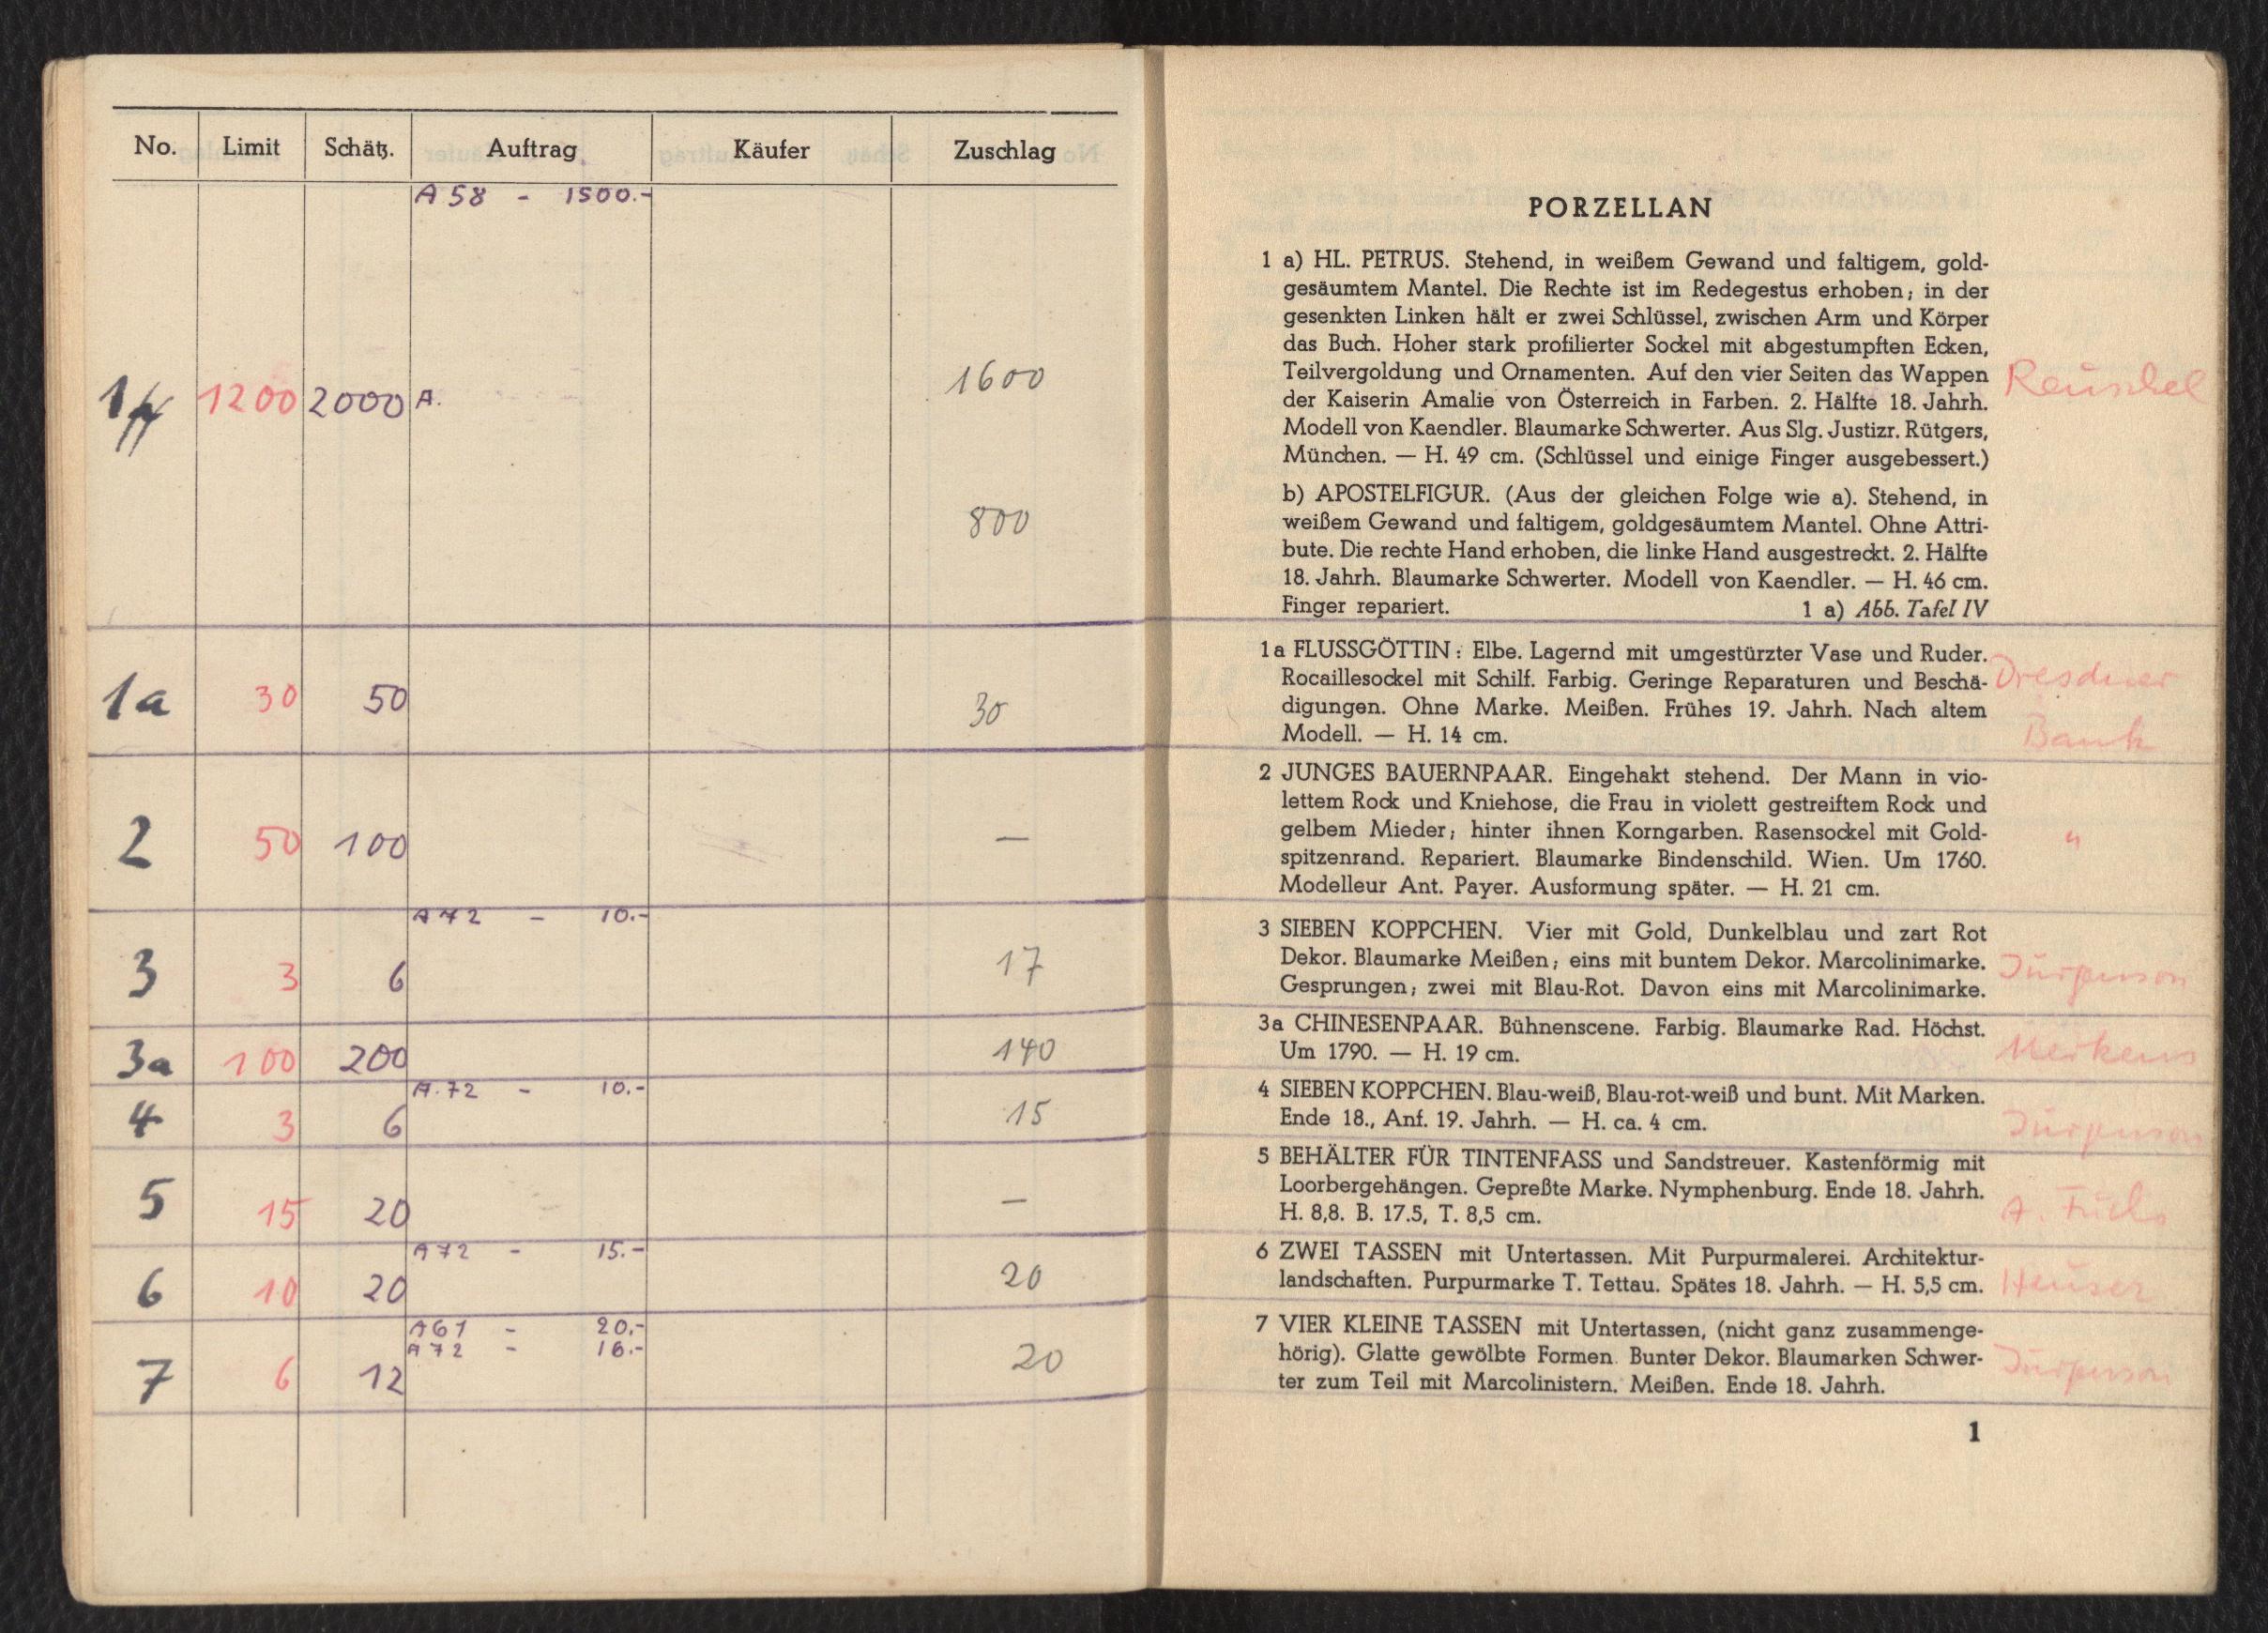 No. Limit Schätz. Auftrag Käufer Zuschlag
A 58 - 1500.-
1 1200 2000 A. 1600
800
1a 30 50 30
2 50 100 —
A 72 - 10.-
3 3 6 17
3a 100 200 140
A. 72 - 10.-
4 3 6 15
5 15 20 —
A 72 - 15.-
6 10 20 20
A 61 - 20.-
A 72 - 16.-
7 6 12 20
PORZELLAN
1 a) HL. PETRUS. Stehend, in weißem Gewand und faltigem, gold-
gesäumtem Mantel. Die Rechte ist im Redegestus erhoben; in der
gesenkten Linken hält er zwei Schlüssel, zwischen Arm und Körper
das Buch. Hoher stark profilierter Sockel mit abgestumpften Ecken,
Teilvergoldung und Ornamenten. Auf den vier Seiten das Wappen
Reuschel
der Kaiserin Amalie von Österreich in Farben. 2. Hälfte 18. Jahrh.
Modell von Kaendler. Blaumarke Schwerter. Aus Slg. Justizr. Rütgers,
München. — H. 49 cm. (Schlüssel und einige Finger ausgebessert.)
b) APOSTELFIGUR. (Aus der gleichen Folge wie a). Stehend, in
weißem Gewand und faltigem, goldgesäumtem Mantel. Ohne Attri-
bute. Die rechte Hand erhoben, die linke Hand ausgestreckt. 2. Hälfte
18. Jahrh. Blaumarke Schwerter. Modell von Kaendler. — H. 46 cm.
Finger repariert. 1 a) Abb. Tafel IV
1a FLUSSGÖTTIN: Elbe. Lagernd mit umgestürzter Vase und Ruder.
Rocaillesockel mit Schilf. Farbig. Geringe Reparaturen und Beschä-
Dresdner
digungen. Ohne Marke. Meißen. Frühes 19. Jahrh. Nach altem
Modell. — H. 14 cm.
Bank
2 JUNGES BAUERNPAAR. Eingehakt stehend. Der Mann in vio-
lettem Rock und Kniehose, die Frau in violett gestreiftem Rock und
gelbem Mieder; hinter ihnen Korngarben. Rasensockel mit Gold-
"
spitzenrand. Repariert. Blaumarke Bindenschild. Wien. Um 1760.
Modelleur Ant. Payer. Ausformung später. — H. 21 cm.
3 SIEBEN KOPPCHEN. Vier mit Gold, Dunkelblau und zart Rot
Dekor. Blaumarke Meißen; eins mit buntem Dekor. Marcolinimarke.
Gesprungen; zwei mit Blau-Rot. Davon eins mit Marcolinimarke.
3a CHINESENPAAR. Bühnenscene. Farbig. Blaumarke Rad. Höchst.
Um 1790. — H. 19 cm.
Merkens
4 SIEBEN KOPPCHEN. Blau-weiß, Blau-rot-weiß und bunt. Mit Marken.
Ende 18., Anf. 19. Jahrh. — H. ca. 4 cm.
5 BEHÄLTER FÜR TINTENFASS und Sandstreuer. Kastenförmig mit
Loorbergehängen. Gepreßte Marke. Nymphenburg. Ende 18. Jahrh.
H. 8,8. B. 17.5, T. 8,5 cm.
A. Fuchs
6 ZWEI TASSEN mit Untertassen. Mit Purpurmalerei. Architektur-
landschaften. Purpurmarke T. Tettau. Spätes 18. Jahrh. — H. 5,5 cm.
Heuser
7 VIER KLEINE TASSEN mit Untertassen, (nicht ganz zusammenge-
hörig). Glatte gewölbte Formen. Bunter Dekor. Blaumarken Schwer-
ter zum Teil mit Marcolinistern. Meißen. Ende 18. Jahrh.
1